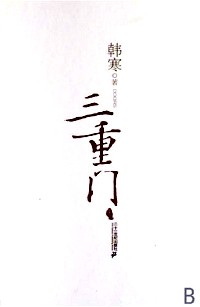 韩寒
著
三重门
B